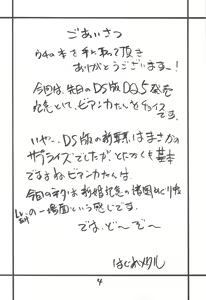 ごあいさつ
ウチの本を手に取って頂き
ありがとうございますー!
今回は、先日のDS版DQ5発売
記念として、ビアンカたんをチョイス
です。
いや…DS版の新要素はまさかの
サプライズでしたが、とにかくも基本
ですよねビアンカたんは。
今回のネタは新婚記念の諸国めぐり
の一場面という感じです。
では、ど〜ぞ〜
はじめメタル
4